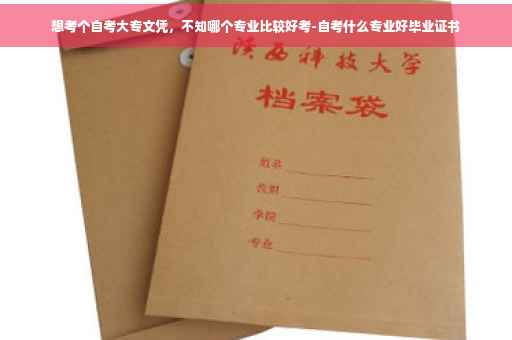 想考个自考大专文凭，不知哪个专业比较好考-自考什么专业好毕业证书
陕西科技大学
档案袋
姓名
学院
专业